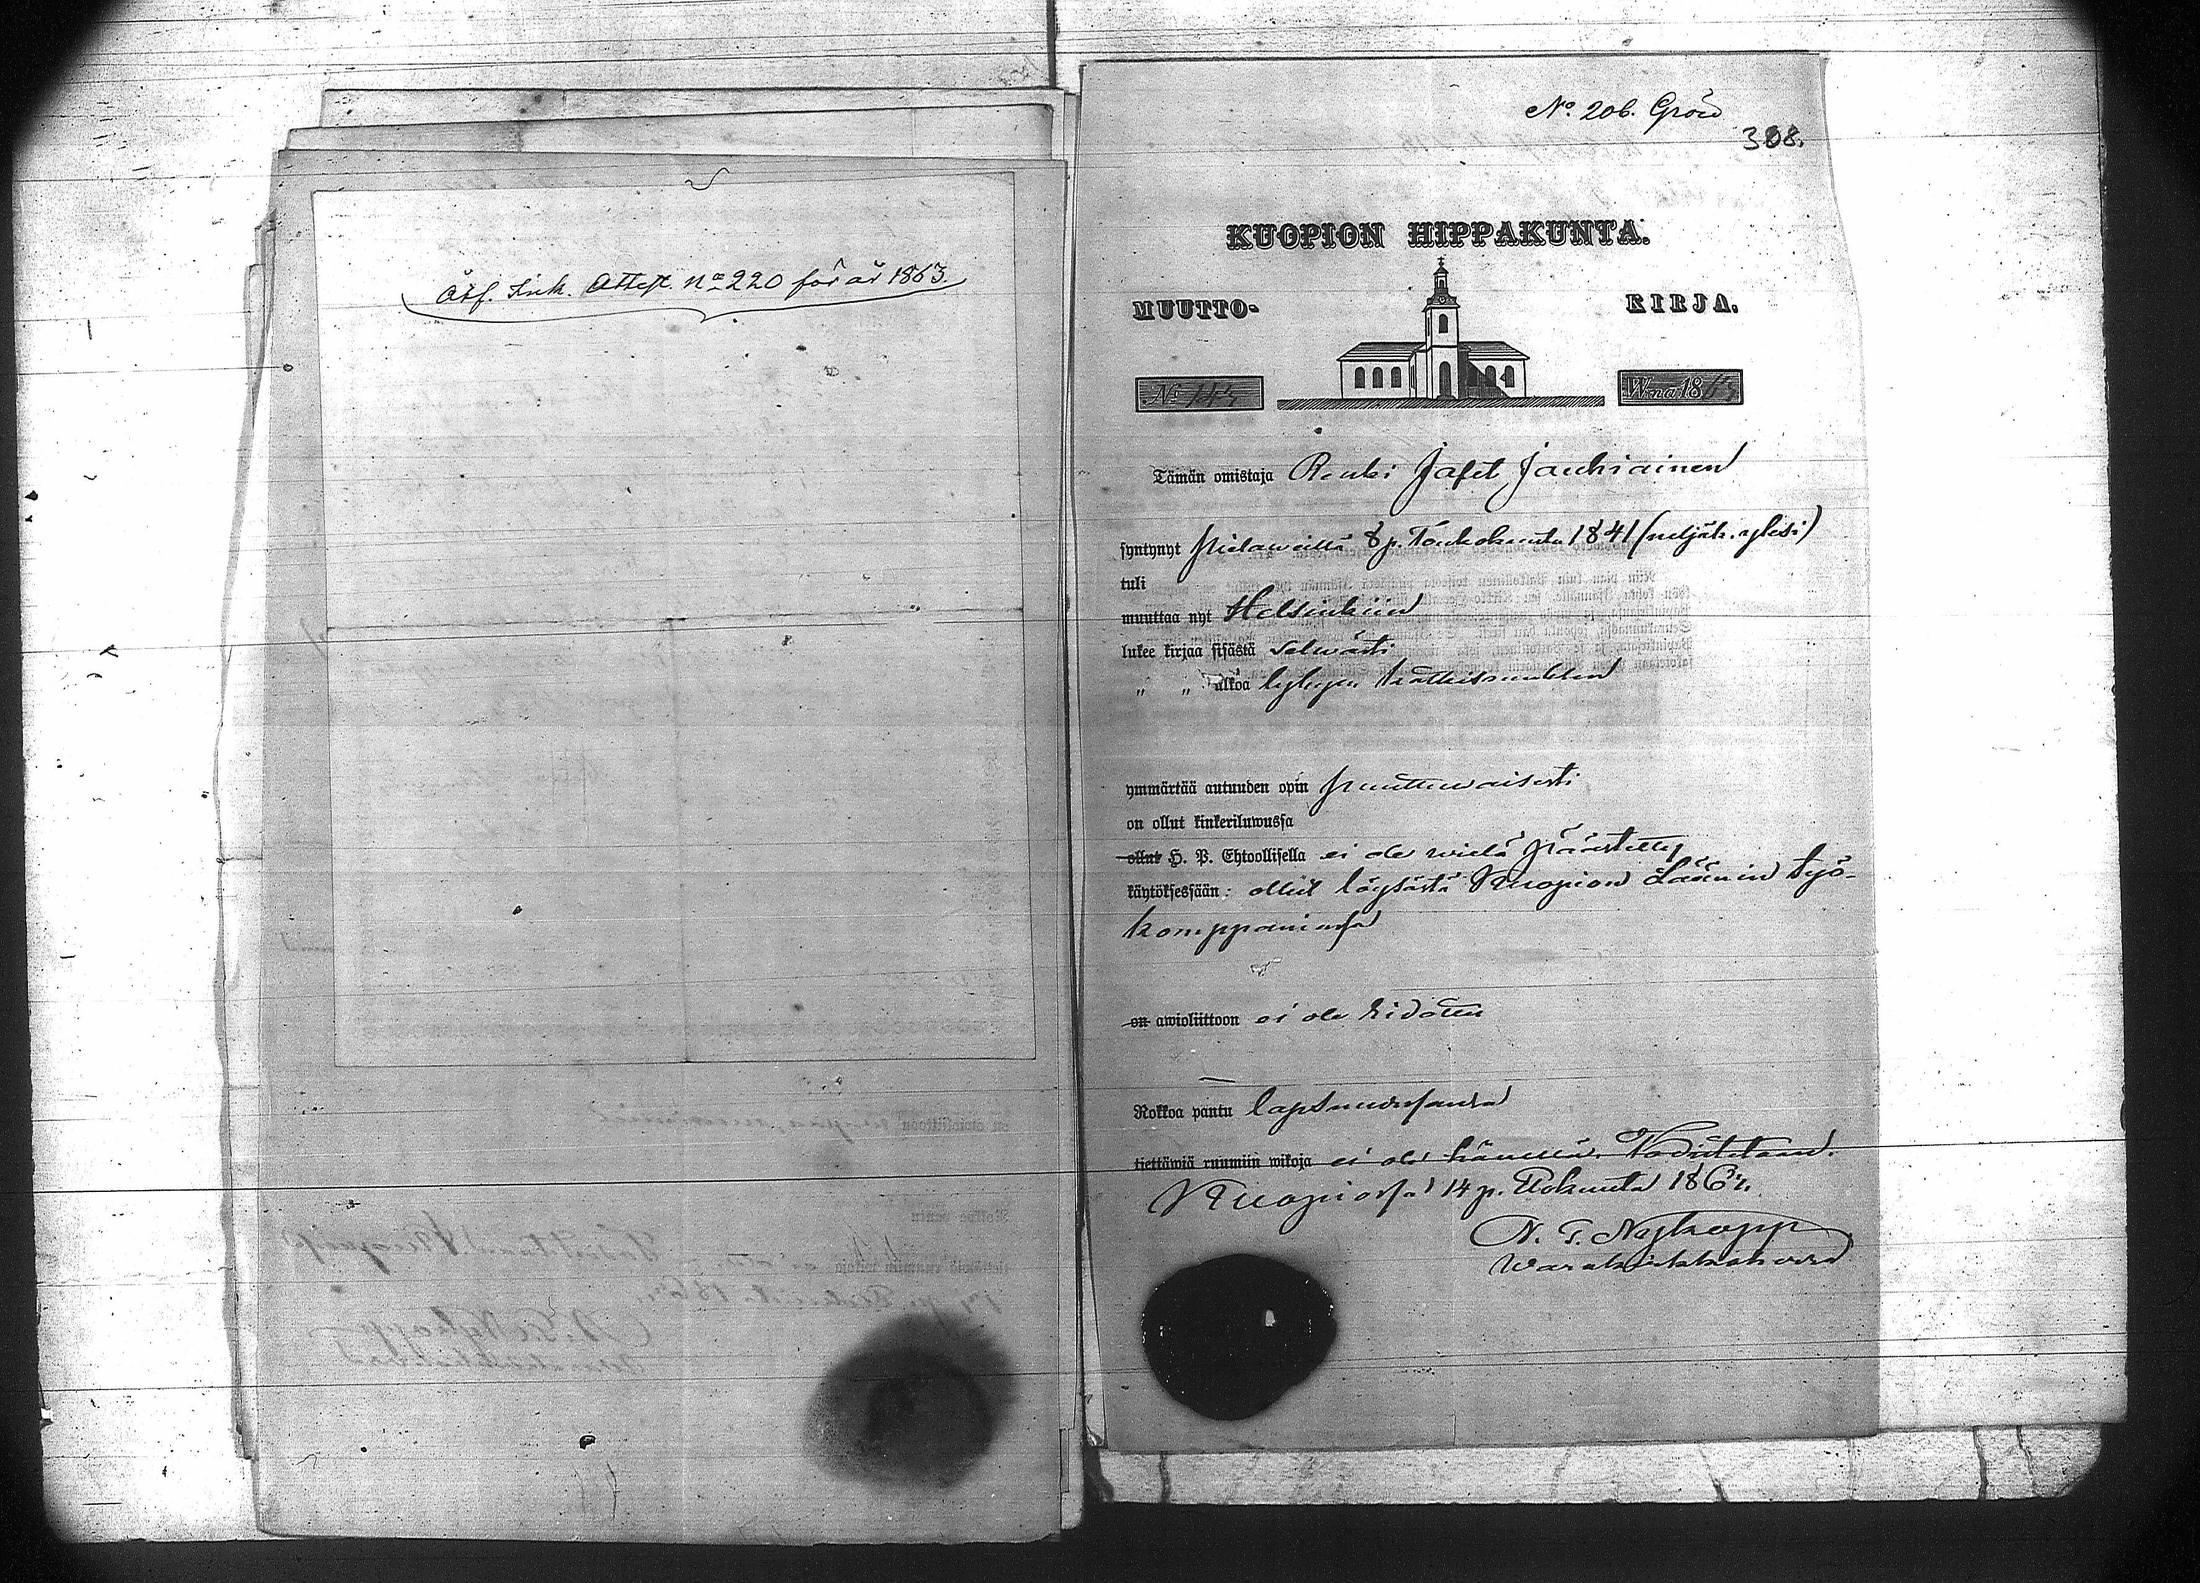 Öfs. Ink. Attest. No 220 för år 1863.
No. 206. Gröd
308.
KUOPION HIPPAKUNTA.
MUUTTO- KIRJA.
No 143 W:na 1863
Tämän omistaja Renki Jafet Jauhiainen
syntynyt Pielaweillä 8 p. Toukokuuta 1841 (neljäk. yksi)
tuli
muuttaa nyt Helsinkiin
lukee kirjaa sisästä selwästi
„ „ ulkoa lyhyen katkismuksen
ymmärtää autuuden opin puuttuwaisesti
on ollut kinkeriluwussa
ollut H. P. Ehtoollisella ei ole wielä päästetty
käytöksessään: ollut löysästä Kuopion Läänin työ-
komppaniassa
on awioliittoon ei ole sidottu
Rokkoa pantu lapsuudessansa
tiettäwiä ruumiin wikoja ei ole hänessä. Todistetaan.
Kuopiossa 14 p. Elokuuta 1863.
N. G. Nykopp
Warakirkkoherra